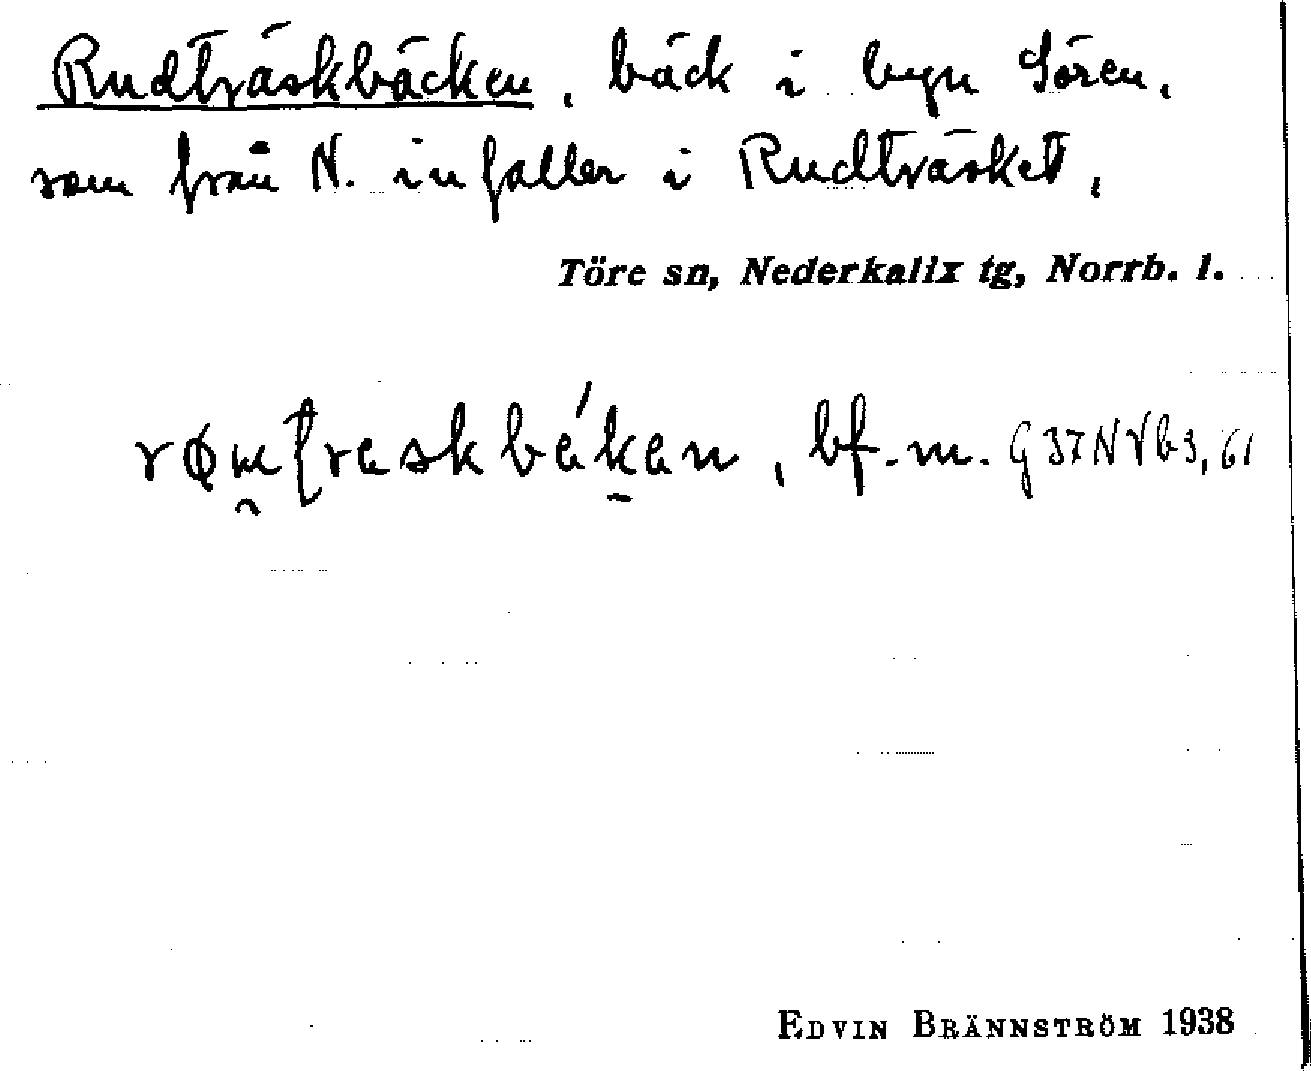 Rudträskbäcken, bäck i byn Sören,
som från N. infaller i Rudträsket,
Töre sn, Nederkalix tg, Norrb. l.
bf. m. G37NVb3,61
EDVIN BRÄNNSTRÖM 1938